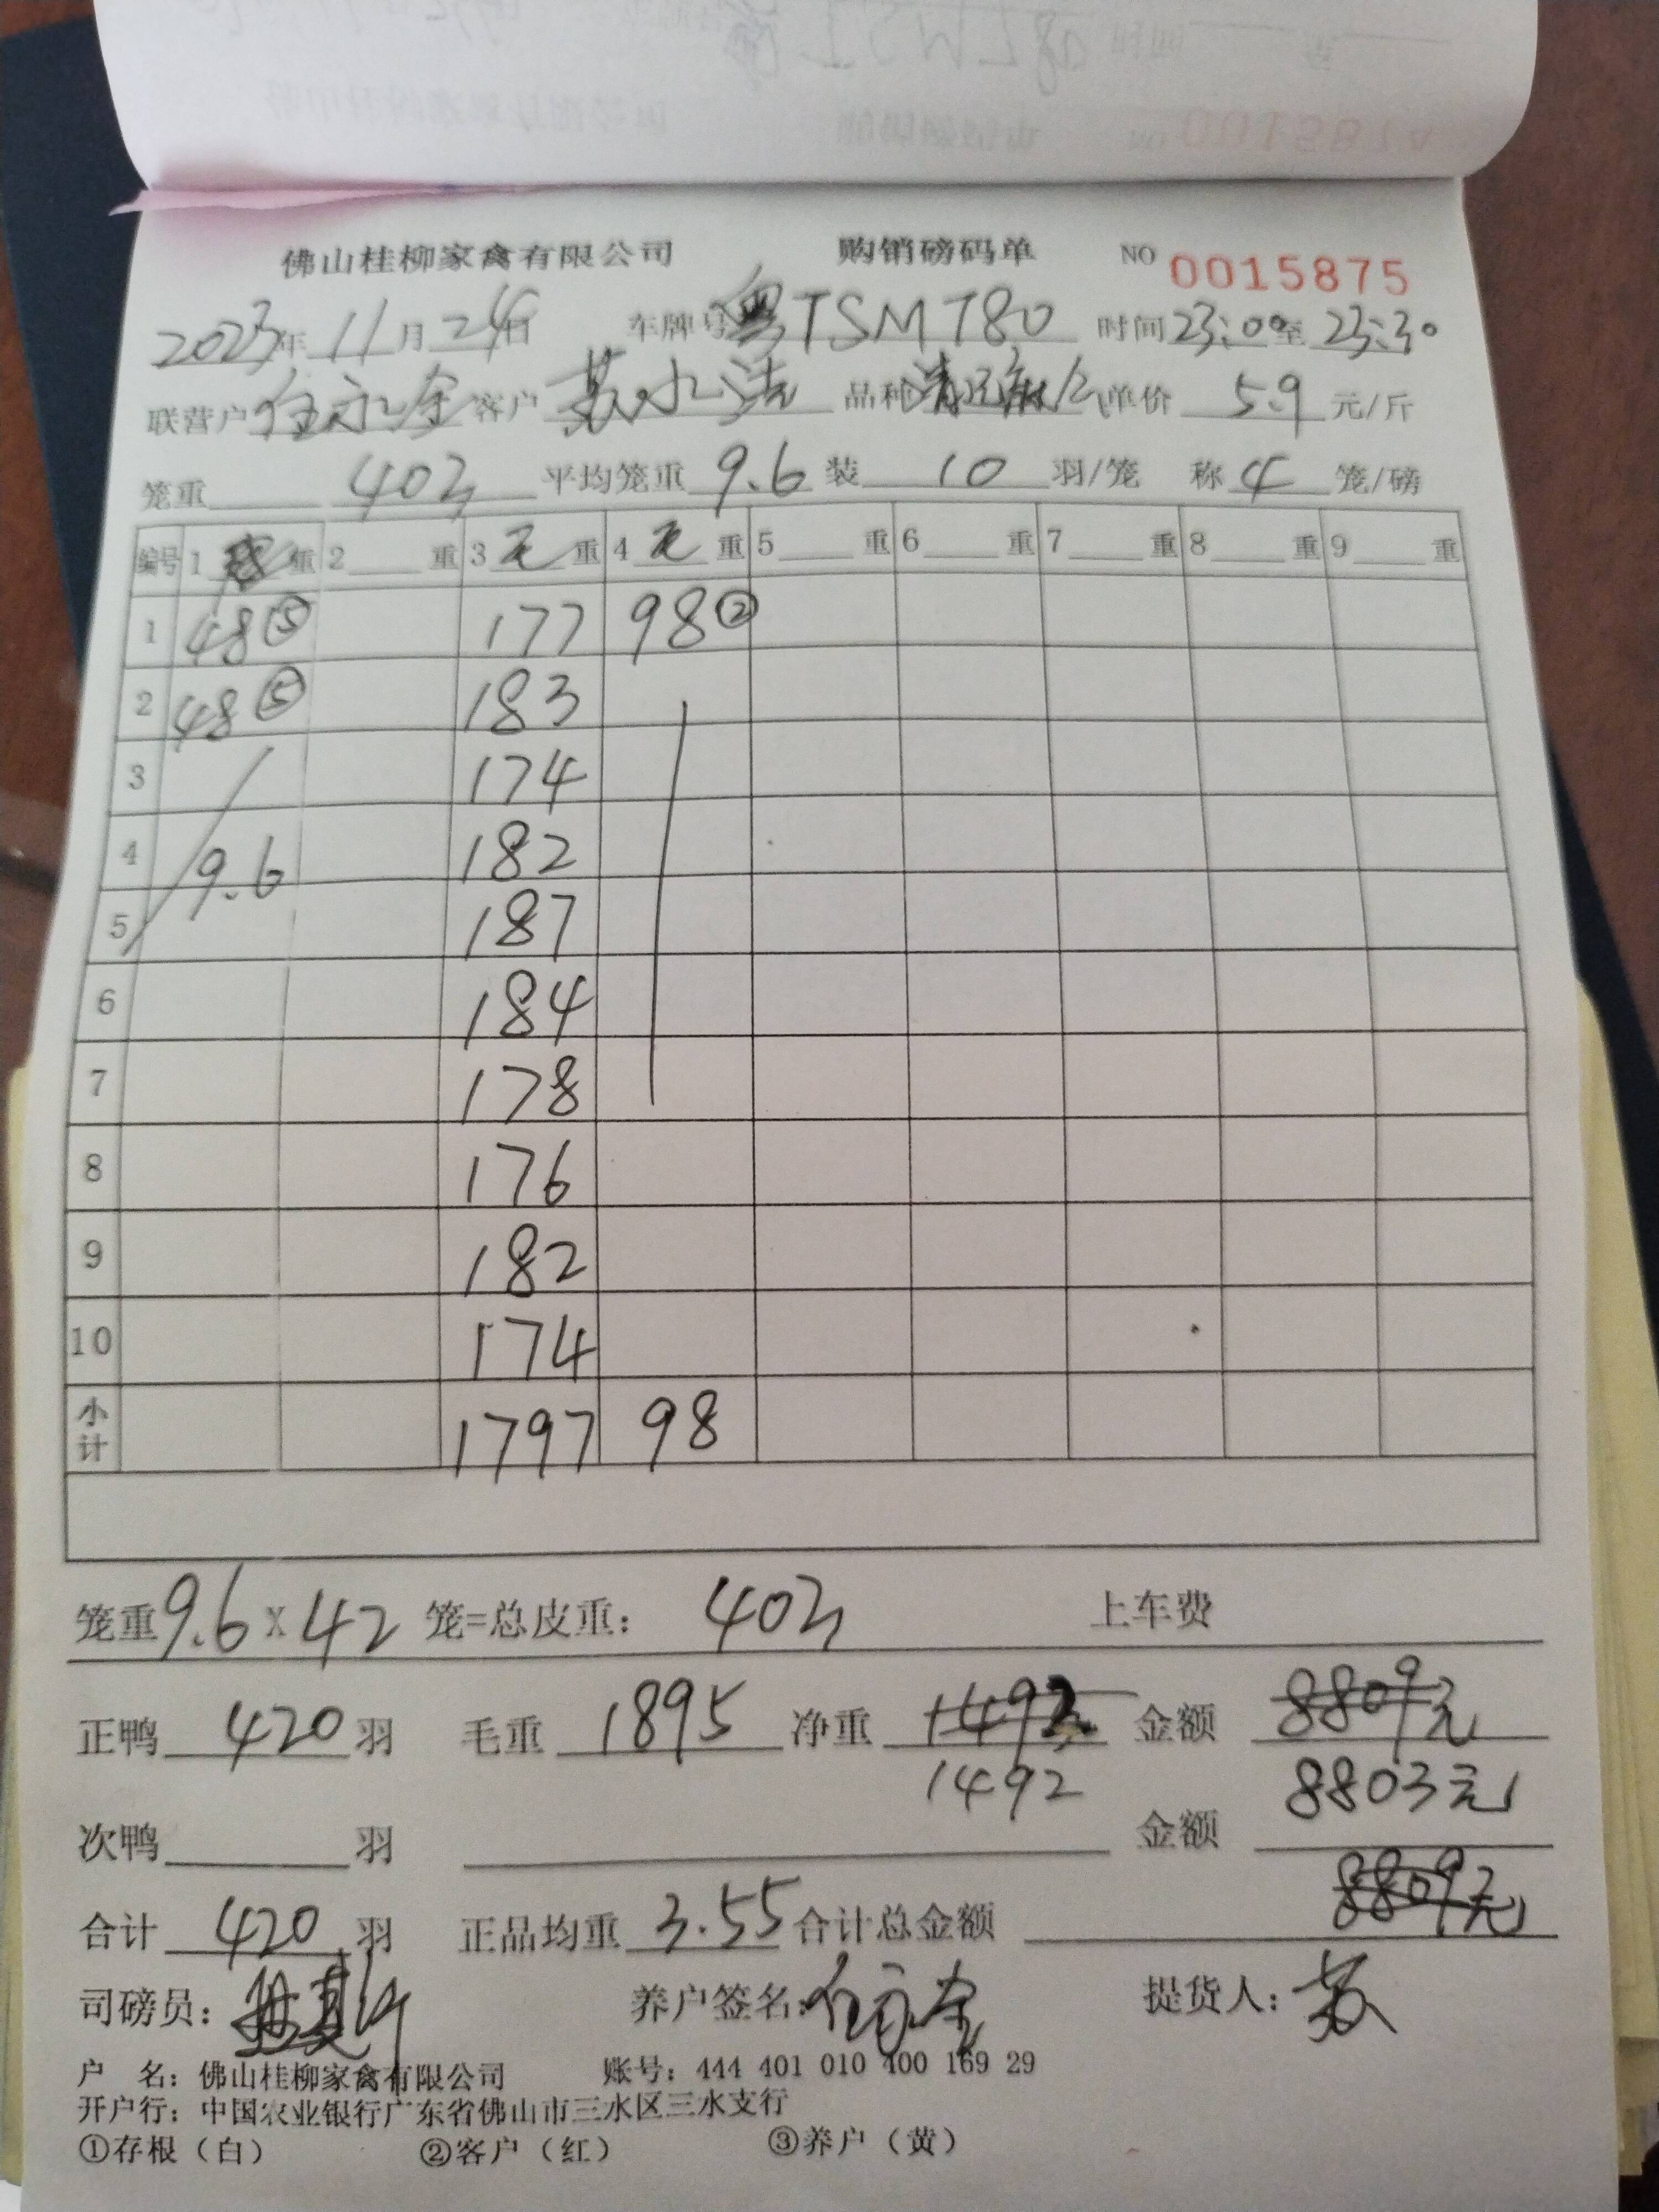 佛山桂柳家禽有限公司 购销磅码单 NO 0015875
2023年11月24日 车牌号粤TSM780 时间23:00至23:30
联营户任永金 客户苏永洁 品种 单价5.9元/斤
笼重403 平均笼重9.6装10羽/笼 称4笼/磅
编号 1重 2重 3毛重 4毛重 5重 6重 7重 8重 9重
1 48⑤ 177 98②
2 48⑤ 183
3 174
4 9.6 182
5 187
6 184
7 178
8 176
9 182
10 174
小计 1797 98
笼重9.6X42笼=总皮重：403 上车费
正鸭420羽 毛重1895 净重1492 金额8809元
1492 8803元
次鸭 羽 金额
合计420羽 正品均重3.55合计总金额8809元
司磅员： 养户签名：任永金 提货人：苏
户 名：佛山桂柳家禽有限公司 账号：444 401 010 400 169 29
开户行：中国农业银行广东省佛山市三水区三水支行
①存根（白） ②客户（红） ③养户（黄）